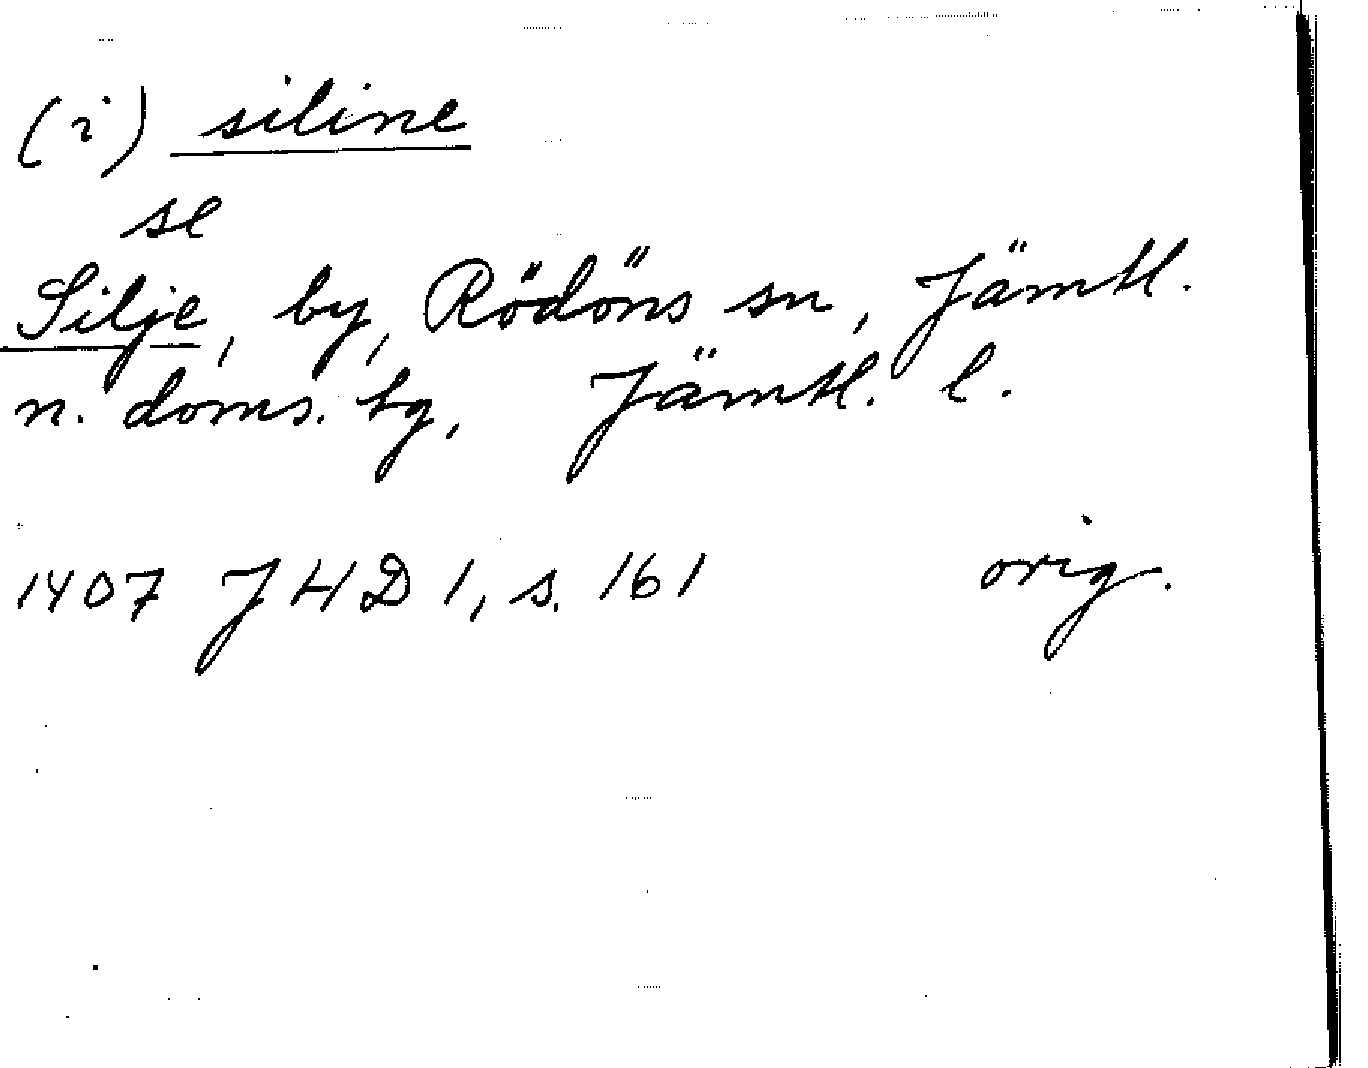 (i) siline
se
Silje, by, Rödöns sn, Jämtl.
n. doms. hg, Jämtl. l.
1407 JHD 1, s. 161 orig.